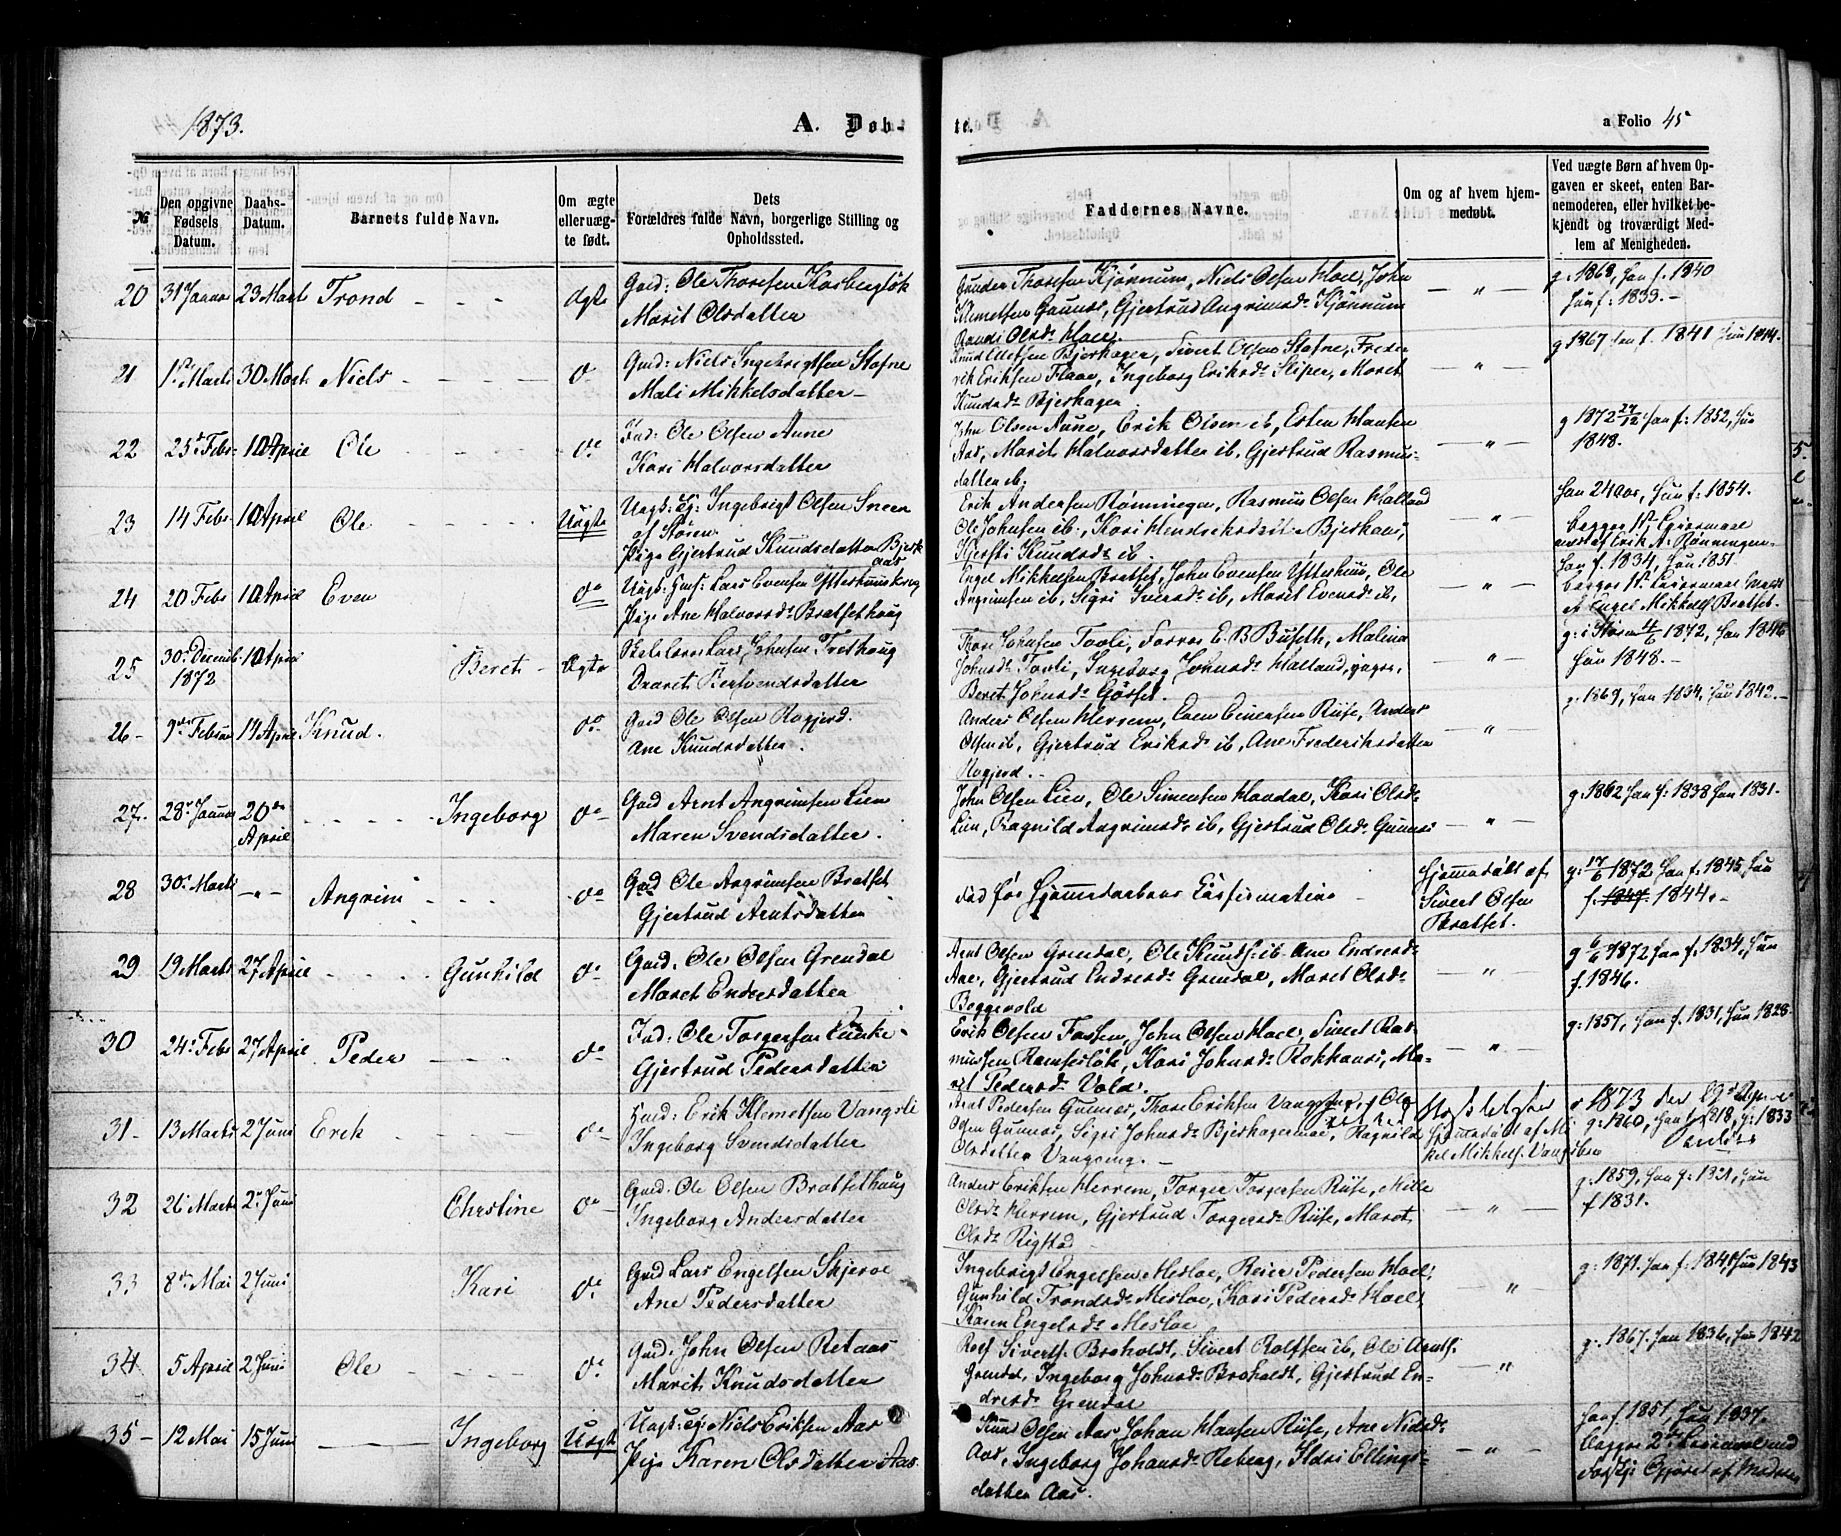 1873.
A. Døb-
te.
a Folio 45
№
Den opgivne Fødsels Datum.
Daabs-Datum.
Barnets fulde Navn.
Om ægte eller uægte født.
Dets Forældres fulde Navn, borgerlige Stilling og Opholdssted.
Faddernes Navne.
Om og af hvem hjemmedøbt.
Ved uægte Børn af hvem Opgaven er skeet, enten Barnemoderen, eller hvilket bekjendt og troværdigt Medlem af Menigheden.
20 31 Januar 23 Marts Trond Ægte Gmd: Ole Thoresen
Marit Olsdatter
Thoresen Kjønnum, Niels Olsen Hoel, John
Klemetsen Gunnes, Gjertrud Angrimsd. Kjønnum
Randi Olsd. Hoel.
g: 1868, han f. 1840
hun f: 1833.
21 1ste Marts 30 Marts Niels do Gmd: Niels Ingebrigtsen Stofne
Mali Mikkelsdatter
Bjerhagen, Sivert Olsen Stofne, Frede-
rik Eriksen Flaae, Ingeborg Eriksd. Sliper, Maret
Knudsd. Bjerhagen
g 1867 han f. 1841 hun 1844.
22 25de Febr 10 April Ole do Ind: Ole Olsen Aune
Kari Halvorsdatter
John Olsen Aune, Erik Olsen ib, Esten Hansen
Aas, Marit Halvorsdatter ib, Gjertrud Rasmus-
datter ib.
g 1872 27/12 han f: 1852, hun
1848.
23 14 Febr 10 April Ole Uægte Ungk: Ingebrigt Olsen Sneen
af Støren
Pige Gjertrud Knudsdatter Bjerk
aas
Erik Andersen Rønningen, Rasmus Olsen Halland
Ole Johnsen ib., Kari Hendriksdatter Bjerkaas,
Kjersti Knudsd. ib.
han 24 Aar, hun f: 1854.
begges 1ste Leiermaal
af Erik A. Rønningen
24 20 Febr 10 April Even do Ungk: Lars Evensen
Pige Ane Halvorsd. Bratsethaug
Engel Mikkelsen Bratset, John Evensen Ytterhuus, Ole
Angrimsen ib, Sigri Iversd. ib, Maret Evensd. ib,
han f. 1834, hun 1851.
begges 1ste Leiermaal
af Engel Mikkels Bratset.
25 30 Decemb 1872 10 April Beret Ægte Lars Johnsen Trethaug
Beret Bersvendsdatter
Thore Johnsen Tovli, E. B. Buseth, Malina
Johnsd. Tovli, Ingeborg Johnsd. Halland, yngre,
Beret Johnsd. Gorset.
g: i Støren 4/6 1872, han 1846
hun 1848.
26 9de Februar 14 April Knud. do Gmd Ole Olsen Hogjerd.
Ane Knudsdatter.
Anders Olsen Herrem, Even Evensen Riise, Anders
Olsen ib, Gjertrud Eriksd. ib, Ane Frederiksdatter
Hogjerd.
g. 1869, han 1834, hun 1842.
27. 28de Januar 20de April Ingeborg do Gmd Arnt Angrimsen Lien
Maren Svendsdatter.
John Olsen Lien, Ole Simensen Havdal, Kari Olsd.
Lien, Ragnild Angrimsd. ib, Gjertrud Olsd. Gunnes
g: 1862 han f. 1838 hun 1831.
28 30 Marts Angrim do Gmd Ole Angrimsen Bratset
Gjertrud Arntsdatter
død før Hjemmedaabens Confirmation
Hjemmedøbt af
Sivert Olsen
Bratset.
g: 17/6 1872 han f: 1845, hun
f. 1844.
29 19 Marts 27 April Gunhild do Gmd. Ole Olsen Grendal
Maret Endresdatter
Arnt Olsen Grendal, Ole Knuts. ib. Ane Endresd.
Aae, Gjertrud Endresd. Grendal, Maret Olsd.
Beggevold
g 6/ 1872 han f. 1834, hun
f. 1846.
30 24de Febr 27 April Peder do Ind: Ole Torgersen
Gjertrud Pedersdatter
Erik Olsen Fossem, John Olsen Hoel, Sivert Ras-
mussen Ramsesløk, Kari Johnsd. Rokkaas, Ma-
ret Pedersd. Vold.
g: 1857, han f. 1831, hun 1828
31 13 Marts 2 Juni Erik do Gmd: Erik Klemetsen Vangsli
Ingeborg Svendsdatter
Arnt Pedersen Gunnes, Thore Eriksen
Olsen Gunnes, Sigri Johnsd. Bjerhagenmoe, Ragnild
Olsdatter Vangseng.
Hjemmedøbt af Mi
kel Mikkels. Vangsben
1873 den
g: 1860,
32 26 Marts 2 Juni Christine do Gmd: Ole Olsen Bratsethaug
Ingeborg Andersdatter
Anders Eriksen Herrem, Torger Torgersen Riise, Mille
Olsd. Herrem, Gjertrud Torgersd. Riise, Maret
Olsd. Rigstad
g: 1859, han f: 1831, hun
f 1831.
33 8de Mai 2 Juni Kari do Gmd Lars Engelsen Skjeroe
Ane Pedersdatter
Ingebrigt Engelsen Mesloe, Reier Pedersen Hoel,
Gunhild Trondsd. Mesloe, Kari Pedersd. Hoel,
Karen Engelsd. Mesloe
g: 1871. han f: 1841 hun 1843
34 5 April 2 Juni Ole do Gmd. John Olsen Retaas
Marit Knudsdatter
Rolf Siverts. Broholdt, Sivert Rolfsen ib, Ole Arnts.
Grendal, Ingeborg Johnsd. Broholdt, Gjertrud En-
dresd. Grendal
g: 1867. han 1836, hun 1842
35 12 Mai 15 Juni Ingeborg Uægte Ungk: Niels Eriksen Aas
Pige Karen Olsdatter Aas
Olsen Aas, Johan Hansen Riise, Ane Nielsd.
Aas, Ingeborg Johansd. Reberg, Ildri Ellings-
datter Aas.
han f. 1851, hun 1837.
begges 2de Leiermaal